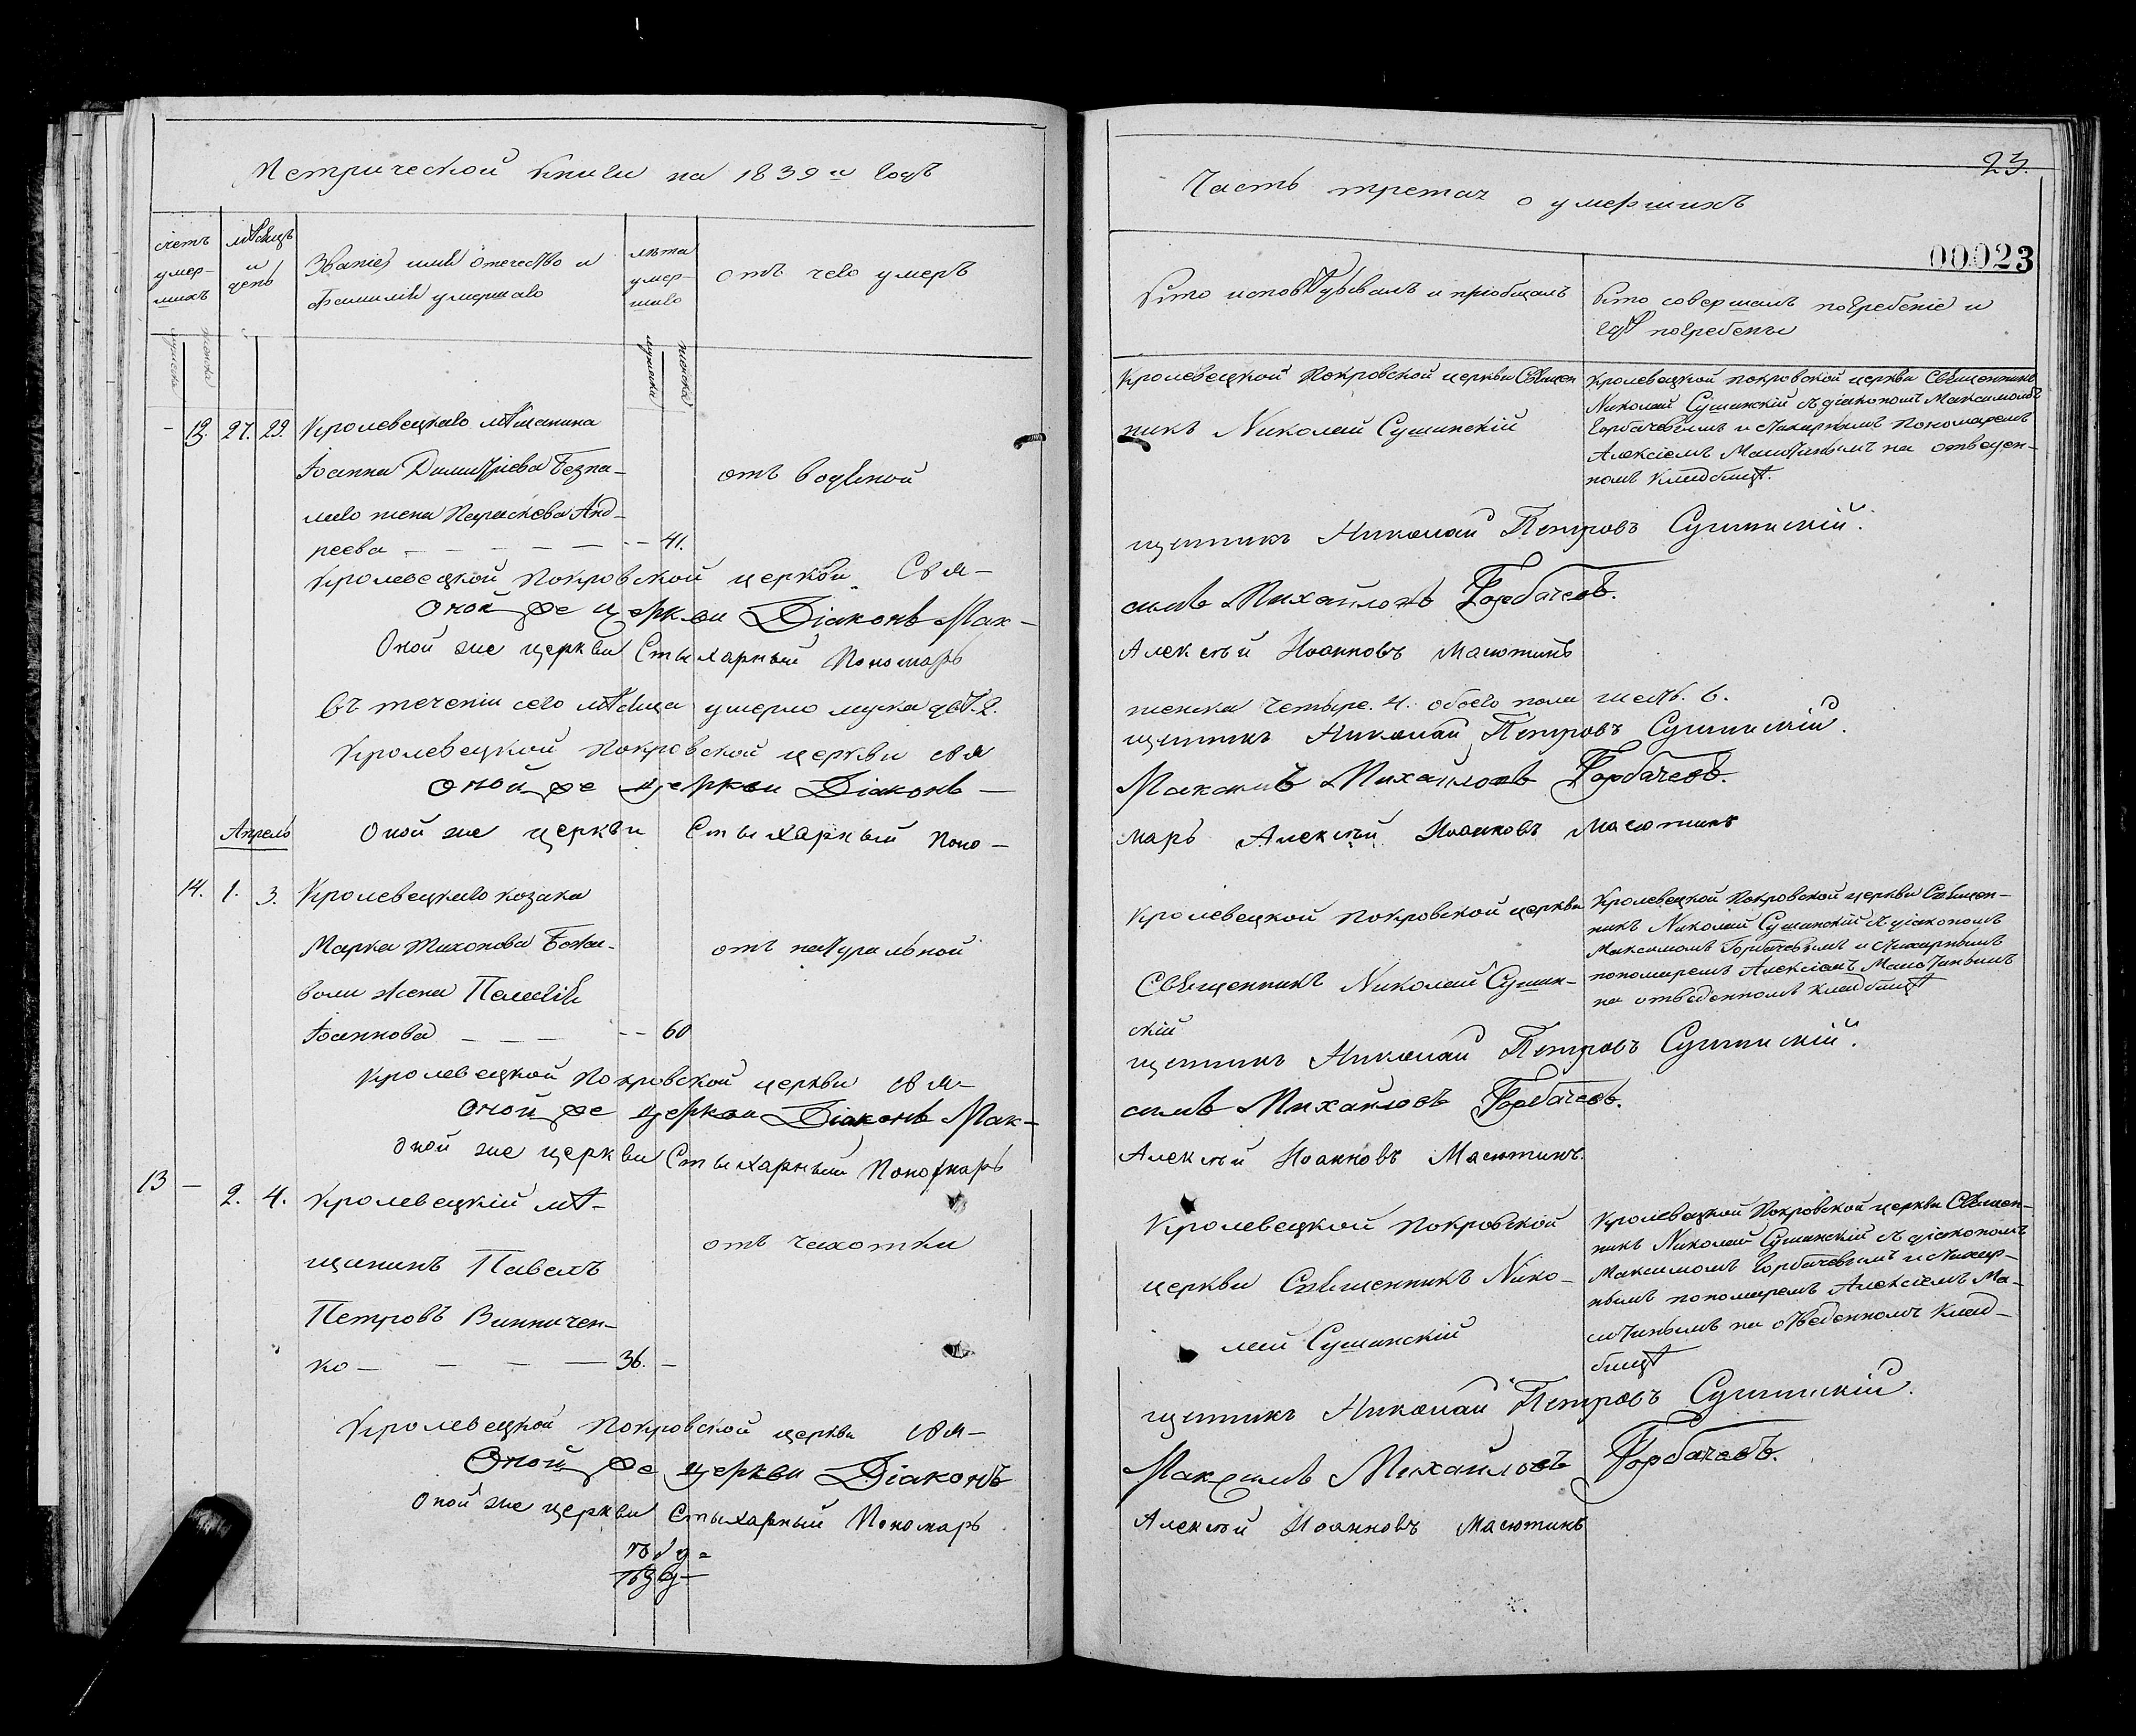 Метрической книги на 1839й годъ
счетъ умер-шихъ
мѣсяцъ и день
Званіе имя отечество и
Фамилія умершаго
лѣта умер-шаго
отъ чего умеръ
мужеска
женска
мужеска
женска
27. 29. Кролевецкаго мѣщанина
Іоанна Димитріева Безпа-
лаго жена Параскева Анд-
реева — — — — — 41.
отъ водяной
Кролевецкой Покровской церкви Свя-
Оной же церкви Діаконъ Мак-
Оной же церкви Стыхарный Пономарь
Въ теченіи сего мѣсяца умерло муска двѣ. 2.
Кролевецкой Покровской церкви свя
Оной же церкви Діаконъ —
Апрель
Оной же церкви Стыхарный Поно-
14. 1. 3. Кролевецкаго козака
Марка Тихонова
жена Пелагія
Іоаннова — — — 60
отъ натуральной
Кролевецкой Покровской церкви свя-
Оной же церкви Діаконъ Мак-
Оной же церкви Стыхарный Пономарь
13 — 2. 4. Кролевецкій мѣ-
щанинъ Павелъ
Петровъ Винничен-
ко — — — — 36. —
отъ чахотки
Кролевецкой Покровской церкви свя-
Оной же церкви Діаконъ
Оной же церкви Стыхарный Пономарь
23.
Часть третая о умершихъ
00023
Кто исповѣдывалъ и пріобщалъ
Кто совершалъ погребеніе и
гдѣ погребены
Кролевецкой Покровской церкви Священ
никъ Николай Сушинскій
Кролевецкой покровской церкви Священникъ
Николай Сушинскій съ діакономъ Максимомъ
Горбачевымъ и стихарнымъ пономаремъ
Алексіемъ Масютинымъ на отведен-
номъ кладбищѣ.
щенникъ Николай Петровъ Сушинскій.
симъ Михайловъ Горбачевъ.
Алексѣй Иоанновъ Масютинъ
женска четыре. 4. обоего пола шесть. 6.
щенникъ Николай Петровъ Сушинскій.
Максимъ Михайловъ Горбачевъ.
марь Алексѣй Иоанновъ Масютинъ
Кролевецкой Покровской церкви
Священникъ Николай Сушин-
скій
Кролевецкой Покровской церкви Священ-
никъ Николай Сушинскій съ діакономъ
Максимомъ Горбачевымъ и стихарнымъ
пономаремъ Алексіемъ Масютинымъ
на отведенномъ кладбищѣ
щенникъ Николай Петровъ Сушинскій.
симъ Михайловъ Горбачевъ.
Алексѣй Иоанновъ Масютинъ.
Кролевецкой Покровской
церкви Священникъ Нико-
лай Сушинскій
Кролевецкой Покровской церкви Священ-
никъ Николай Сушинскій съ діакономъ
Максимомъ Горбачевымъ и стихар-
нымъ пономаремъ Алексіемъ Ма-
сютинымъ на отведенномъ клад-
бищѣ
щенникъ Николай Петровъ Сушинскій.
Максимъ Михайловъ Горбачевъ.
Алексѣй Иоанновъ Масютинъ